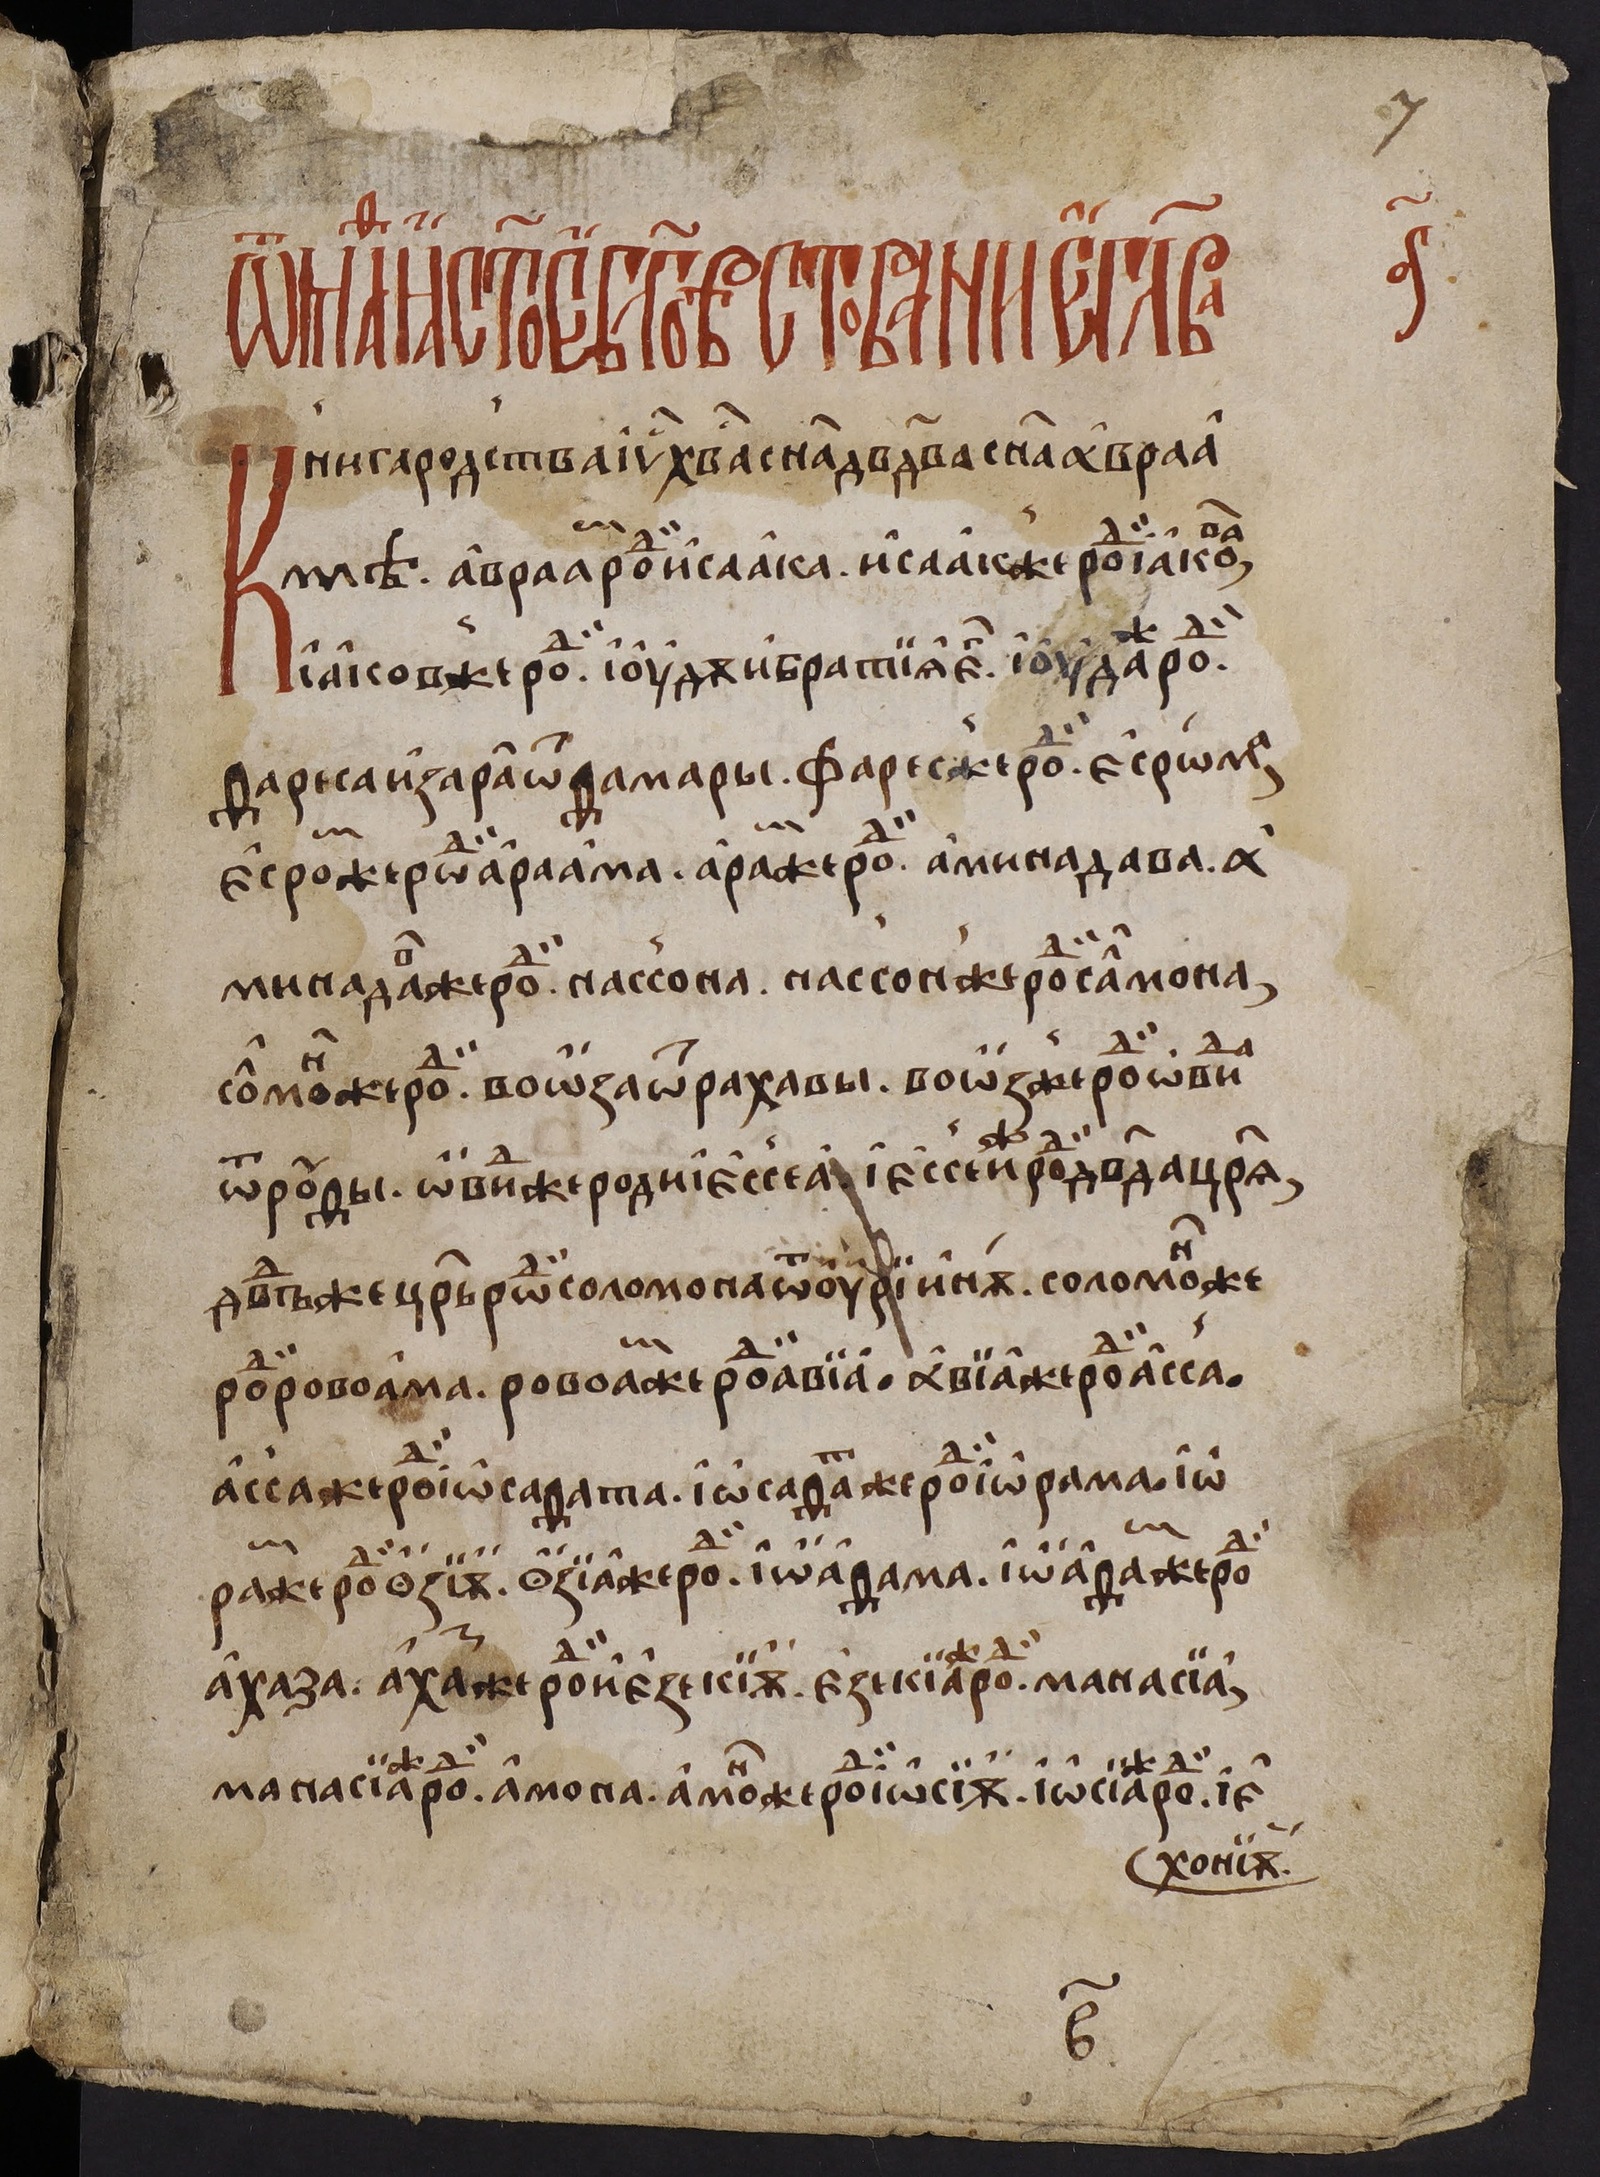 7
ѿ маѳеа ст҃ое бл҃говѣствование глава
ѕ҃
Книга родства і҆у҃ х҃ва̀ сн҃а дв҃два сн҃а а҆враа҆
млѣ. а҆враам роди и҆саа҆ка. и҆саа҆к же роди і҆а҆кова,
і҆а҆ков же роди. і҆о҆удѫ и҆ братїѧ е҆. і҆о҆уда ж роди.
ѳареса и҆ зара ѿ ѳамары. фарес же роди. е҆срѡма,
е҆сром же рѡди а҆раа҆ма. а҆рам же роди. а҆минадава. а҆
минадав же роди. нассона. нассон же роди са҆лмона,
со҆лмон же роди. воѡза ѿ рахавы. воѡз же роди ѡ҆вида
ѿ роѳы. ѡ҆вид же родни і҆е҆ссеа҆. і҆е҆ссей ж роди дв҃да цр҃ѧ,
дв҃дъ же цр҃ь рѡди соломона ѿ о҆урїинѫ. соломон же
роди ровоа҆ма. ровоам же роди авїа҆. а҆вїа же роди а҆сса.
а҆сса же роди і҆ѡсаѳата. і҆ѡсаѳат же роди і҆ѡрама. і҆ѡ
рам же роди ѻзїѫ. ѻзїа же роди. і҆ѡа҆ѳама. і҆ѡа҆ѳам же роди
а҆хаза. а҆хаз же роди и҆ е҆зекїѫ. е҆зекїа ж роди. манасїа҆,
манасїа ж роди. а҆мона. а҆мон же роди і҆ѡсїѫ. і҆ѡсїа ж роди. і҆е҆
хонїѫ.
в҃